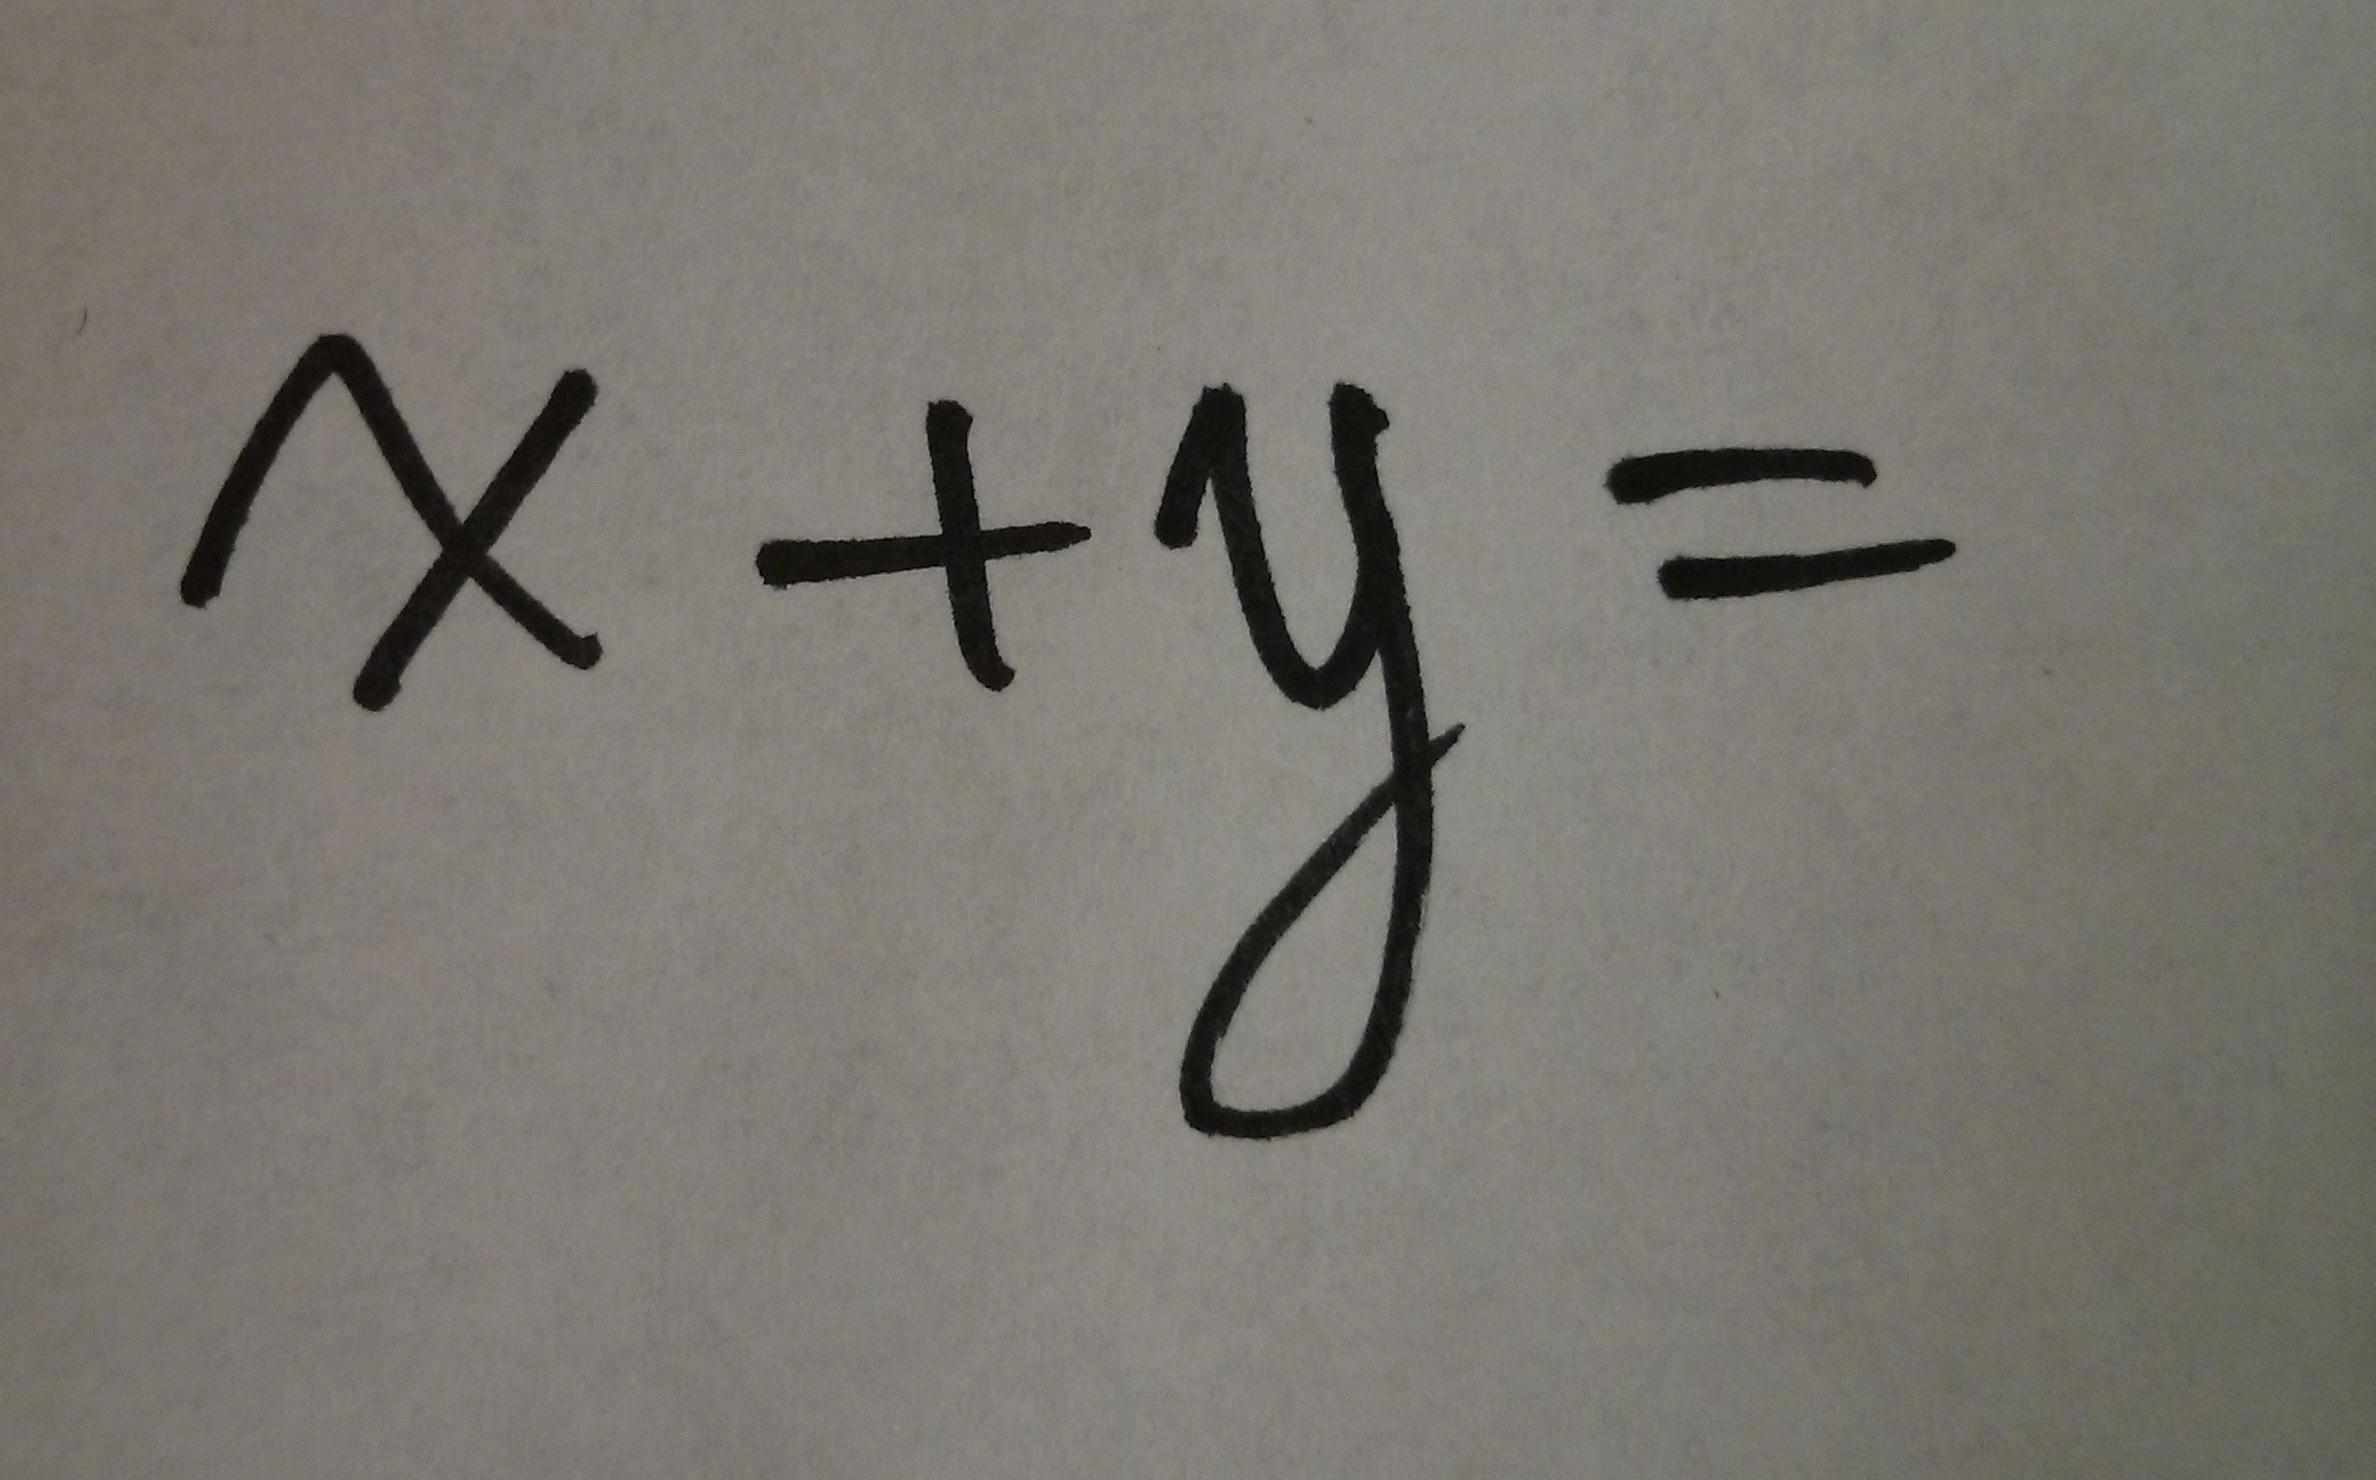 x + y =